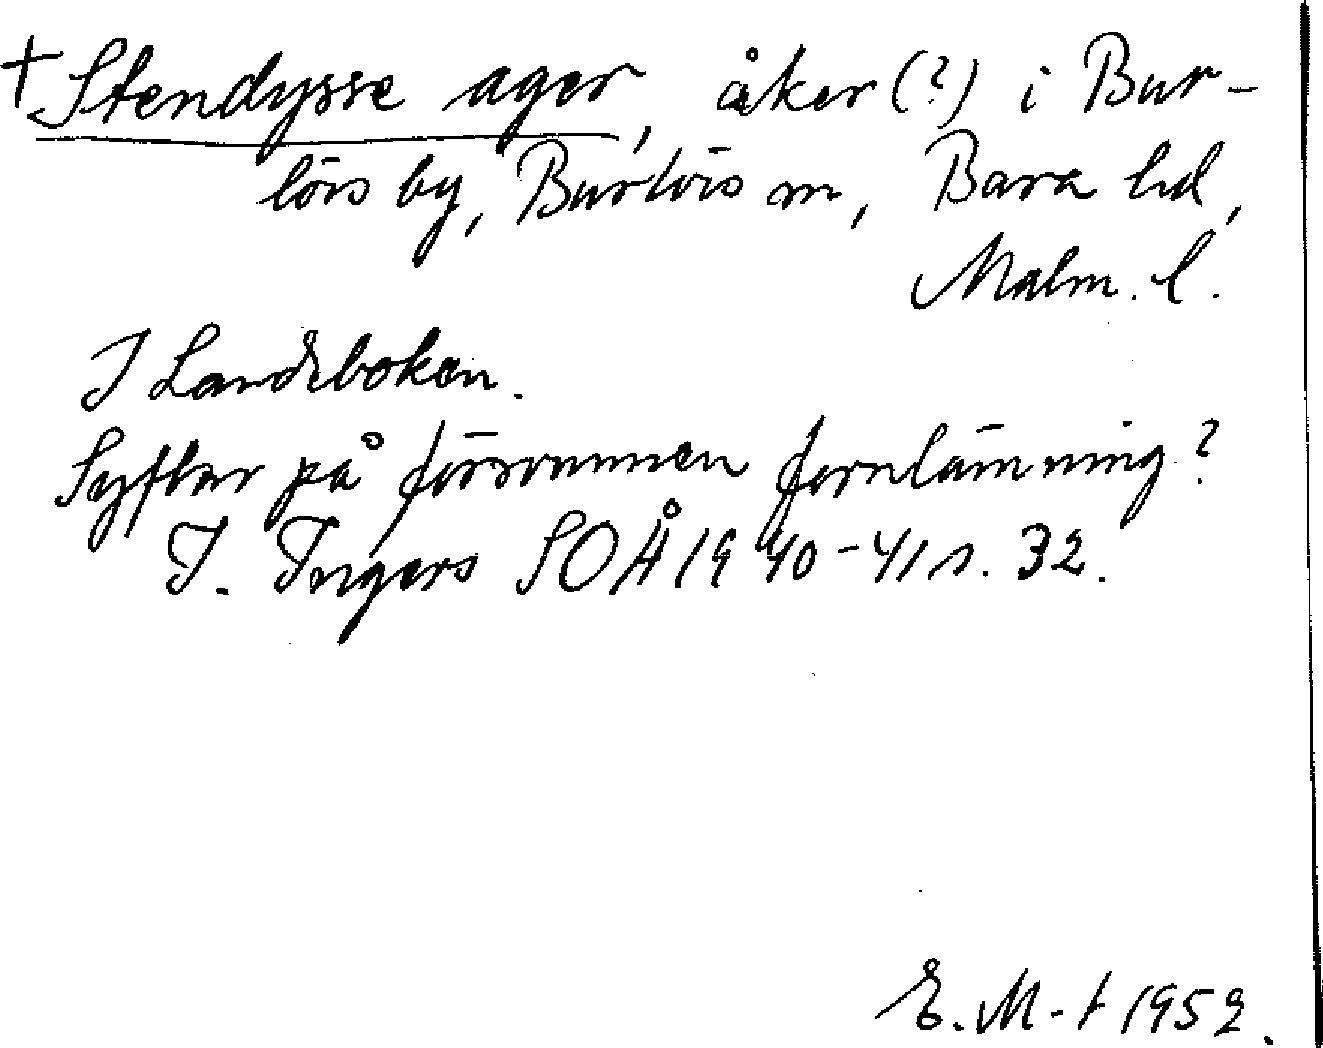 + Stendysse ager, åker (?) i Bur-
lörs by, Burlövs sn, Bara hd,
Malm. l.
I Landeboken.
Syftar på försvunnen fornlämning?
I. Ingers SOÅ 1940-41 s. 32.
E. M-t 1952.